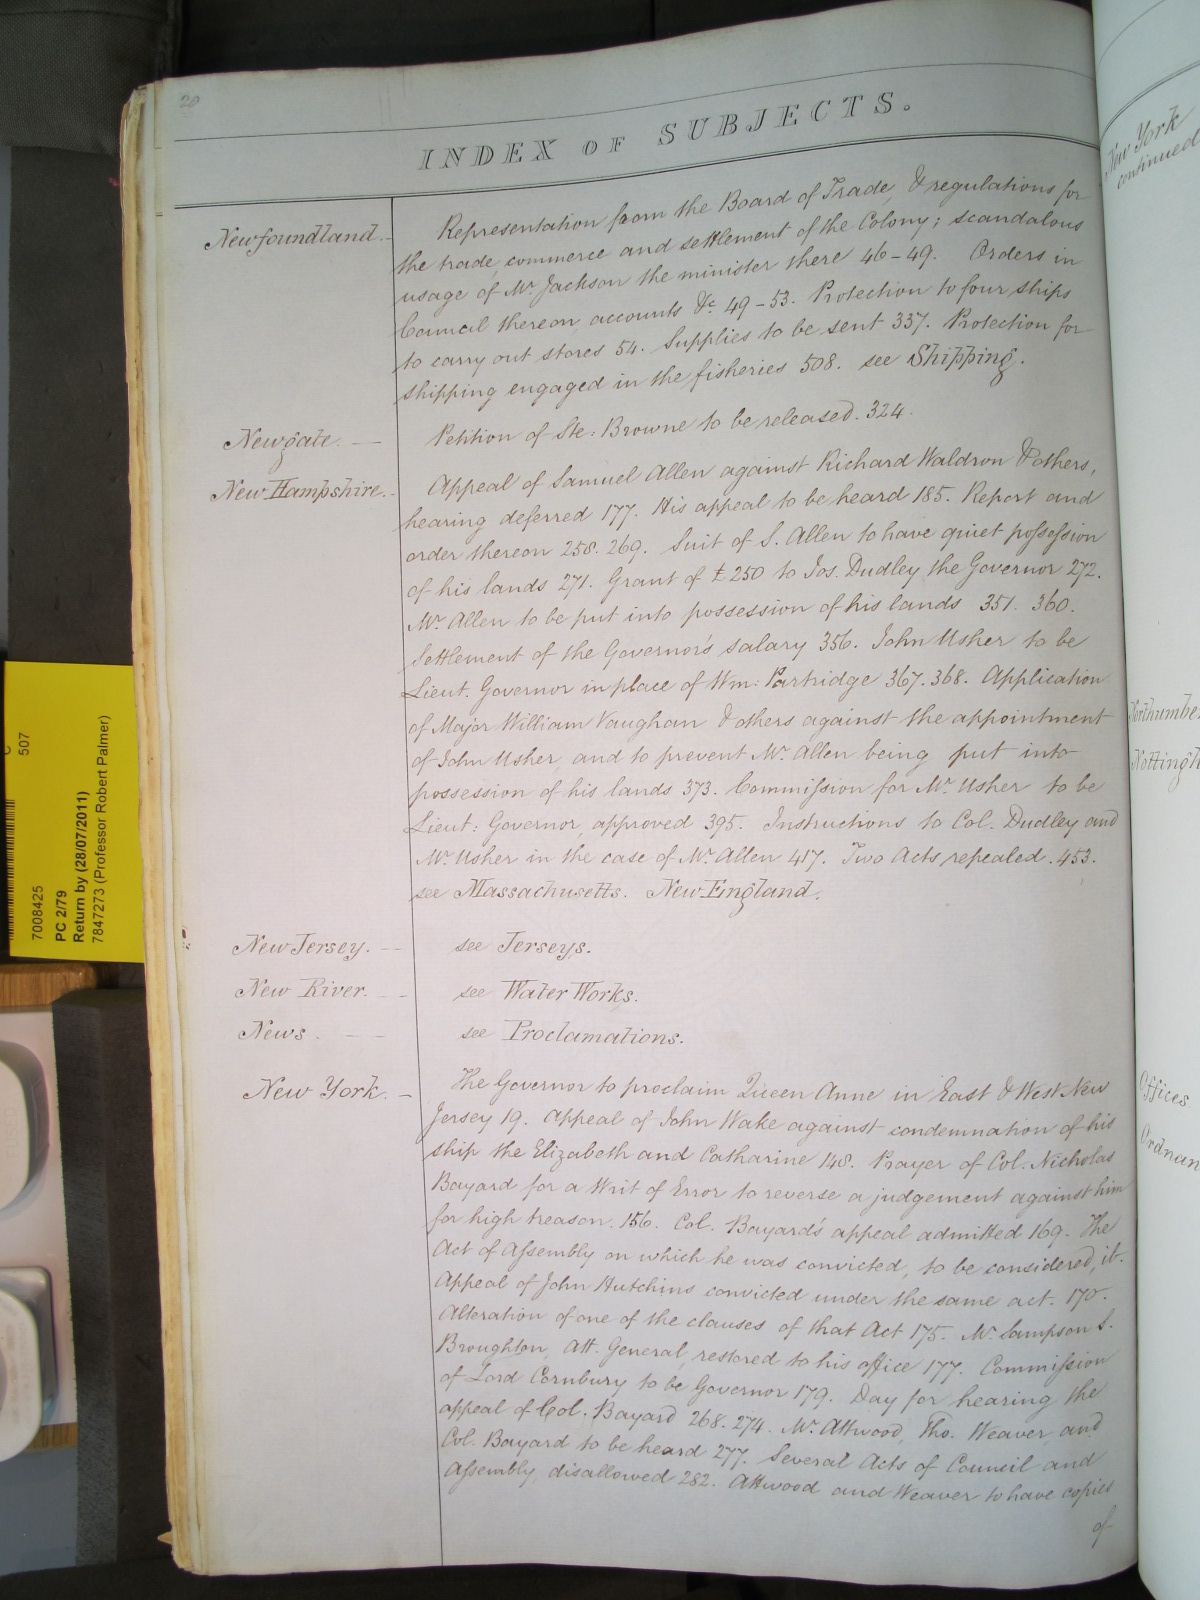 20
INDEX OF SUBJECTS.
Newfoundland.
Representation from the Board of Trade, & regulations for
the trade, commerce and settlement of the Colony; scandalous
usage of Mr. Jackson the minister there 46-49. Orders in
Council thereon, accounts &c. 49-53. Protection to four ships
to carry out stores 54. Supplies to be sent 337. Protection for
shipping engaged in the fisheries 508. see Shipping.
Newgate. —
Petition of Ste: Browne to be released. 324.
New Hampshire.
Appeal of Samuel Allen against Richard Waldron & others,
hearing deferred 177. His appeal to be heard 185. Report and
order thereon 258. 269. Suit of S. Allen to have quiet possession
of his lands 271. Grant of £250 to Jos. Dudley the Governor 272.
Mr. Allen to be put into possession of his lands 351. 360.
Settlement of the Governor's salary 356. John Usher to be
Lieut. Governor in place of Wm: Partridge 367. 368. Application
of Major William Vaughan & others against the appointment
of John Usher, and to prevent Mr. Allen being put into
possession of his lands 373. Commission for Mr. Usher to be
Lieut: Governor, approved 395. Instructions to Col. Dudley and
Mr. Usher in the case of Mr. Allen 417. Two Acts repealed. 453.
see Massachusetts. New England.
New Jersey. — see Jerseys.
New River. — see Water Works.
News. — see Proclamations.
New York. —
The Governor to proclaim Queen Anne in East & West New
Jersey 19. Appeal of John Wake against condemnation of his
ship the Elizabeth and Catharine 148. Prayer of Col. Nicholas
Bayard for a Writ of Error to reverse a judgement against him
for high treason. 156. Col. Bayard's appeal admitted 169. The
Act of Assembly on which he was convicted, to be considered, ib.
Appeal of John Hutchins convicted under the same act. 170.
Alteration of one of the clauses of that Act 175. Mr. Sampson S.
Broughton, Att. General, restored to his office 177. Commission
of Lord Cornbury to be Governor 179. Day for hearing the
appeal of Col. Bayard 268. 274. Mr. Attwood, Tho. Weaver, and
Col. Bayard to be heard 277. Several Acts of Council and
Assembly, disallowed 282. Attwood and Weaver to have copies
of
New York
continued
Offices
507
7008425
PC 2/79
Return by (28/07/2011)
7847273 (Professor Robert Palmer)